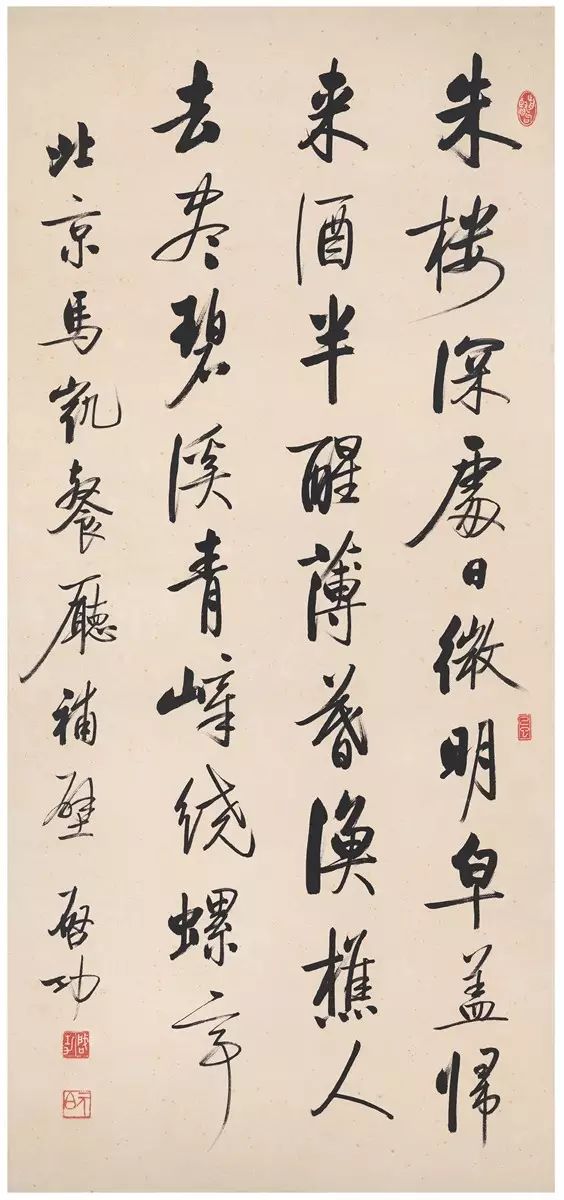 朱楼深處日微明皁盖帰
来酒半醒薄暮渔樵人
去尽碧溪青嶂绕螺亭
北京馬凱餐廳補壁 启功